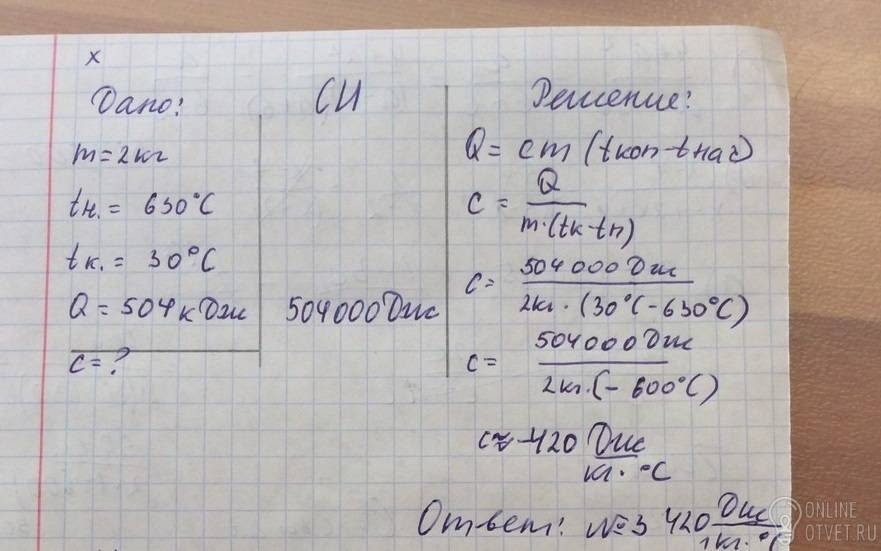 x
Дано:
m=2кг
tн.= 630°C
tк.= 30°C
Q=504кДж
c=?
СИ
504000Дж
Решение:
Q= cm (tкон-tнач)
c= Q
m·(tк-tн)
c= 504000Дж
2кг·(30°C-630°C)
c= 504000Дж
2кг·(-600°C)
c≈-420 Дж
кг·°C
Ответ: №3 420 Дж
кг·°C
ONLINE
OTVET.RU